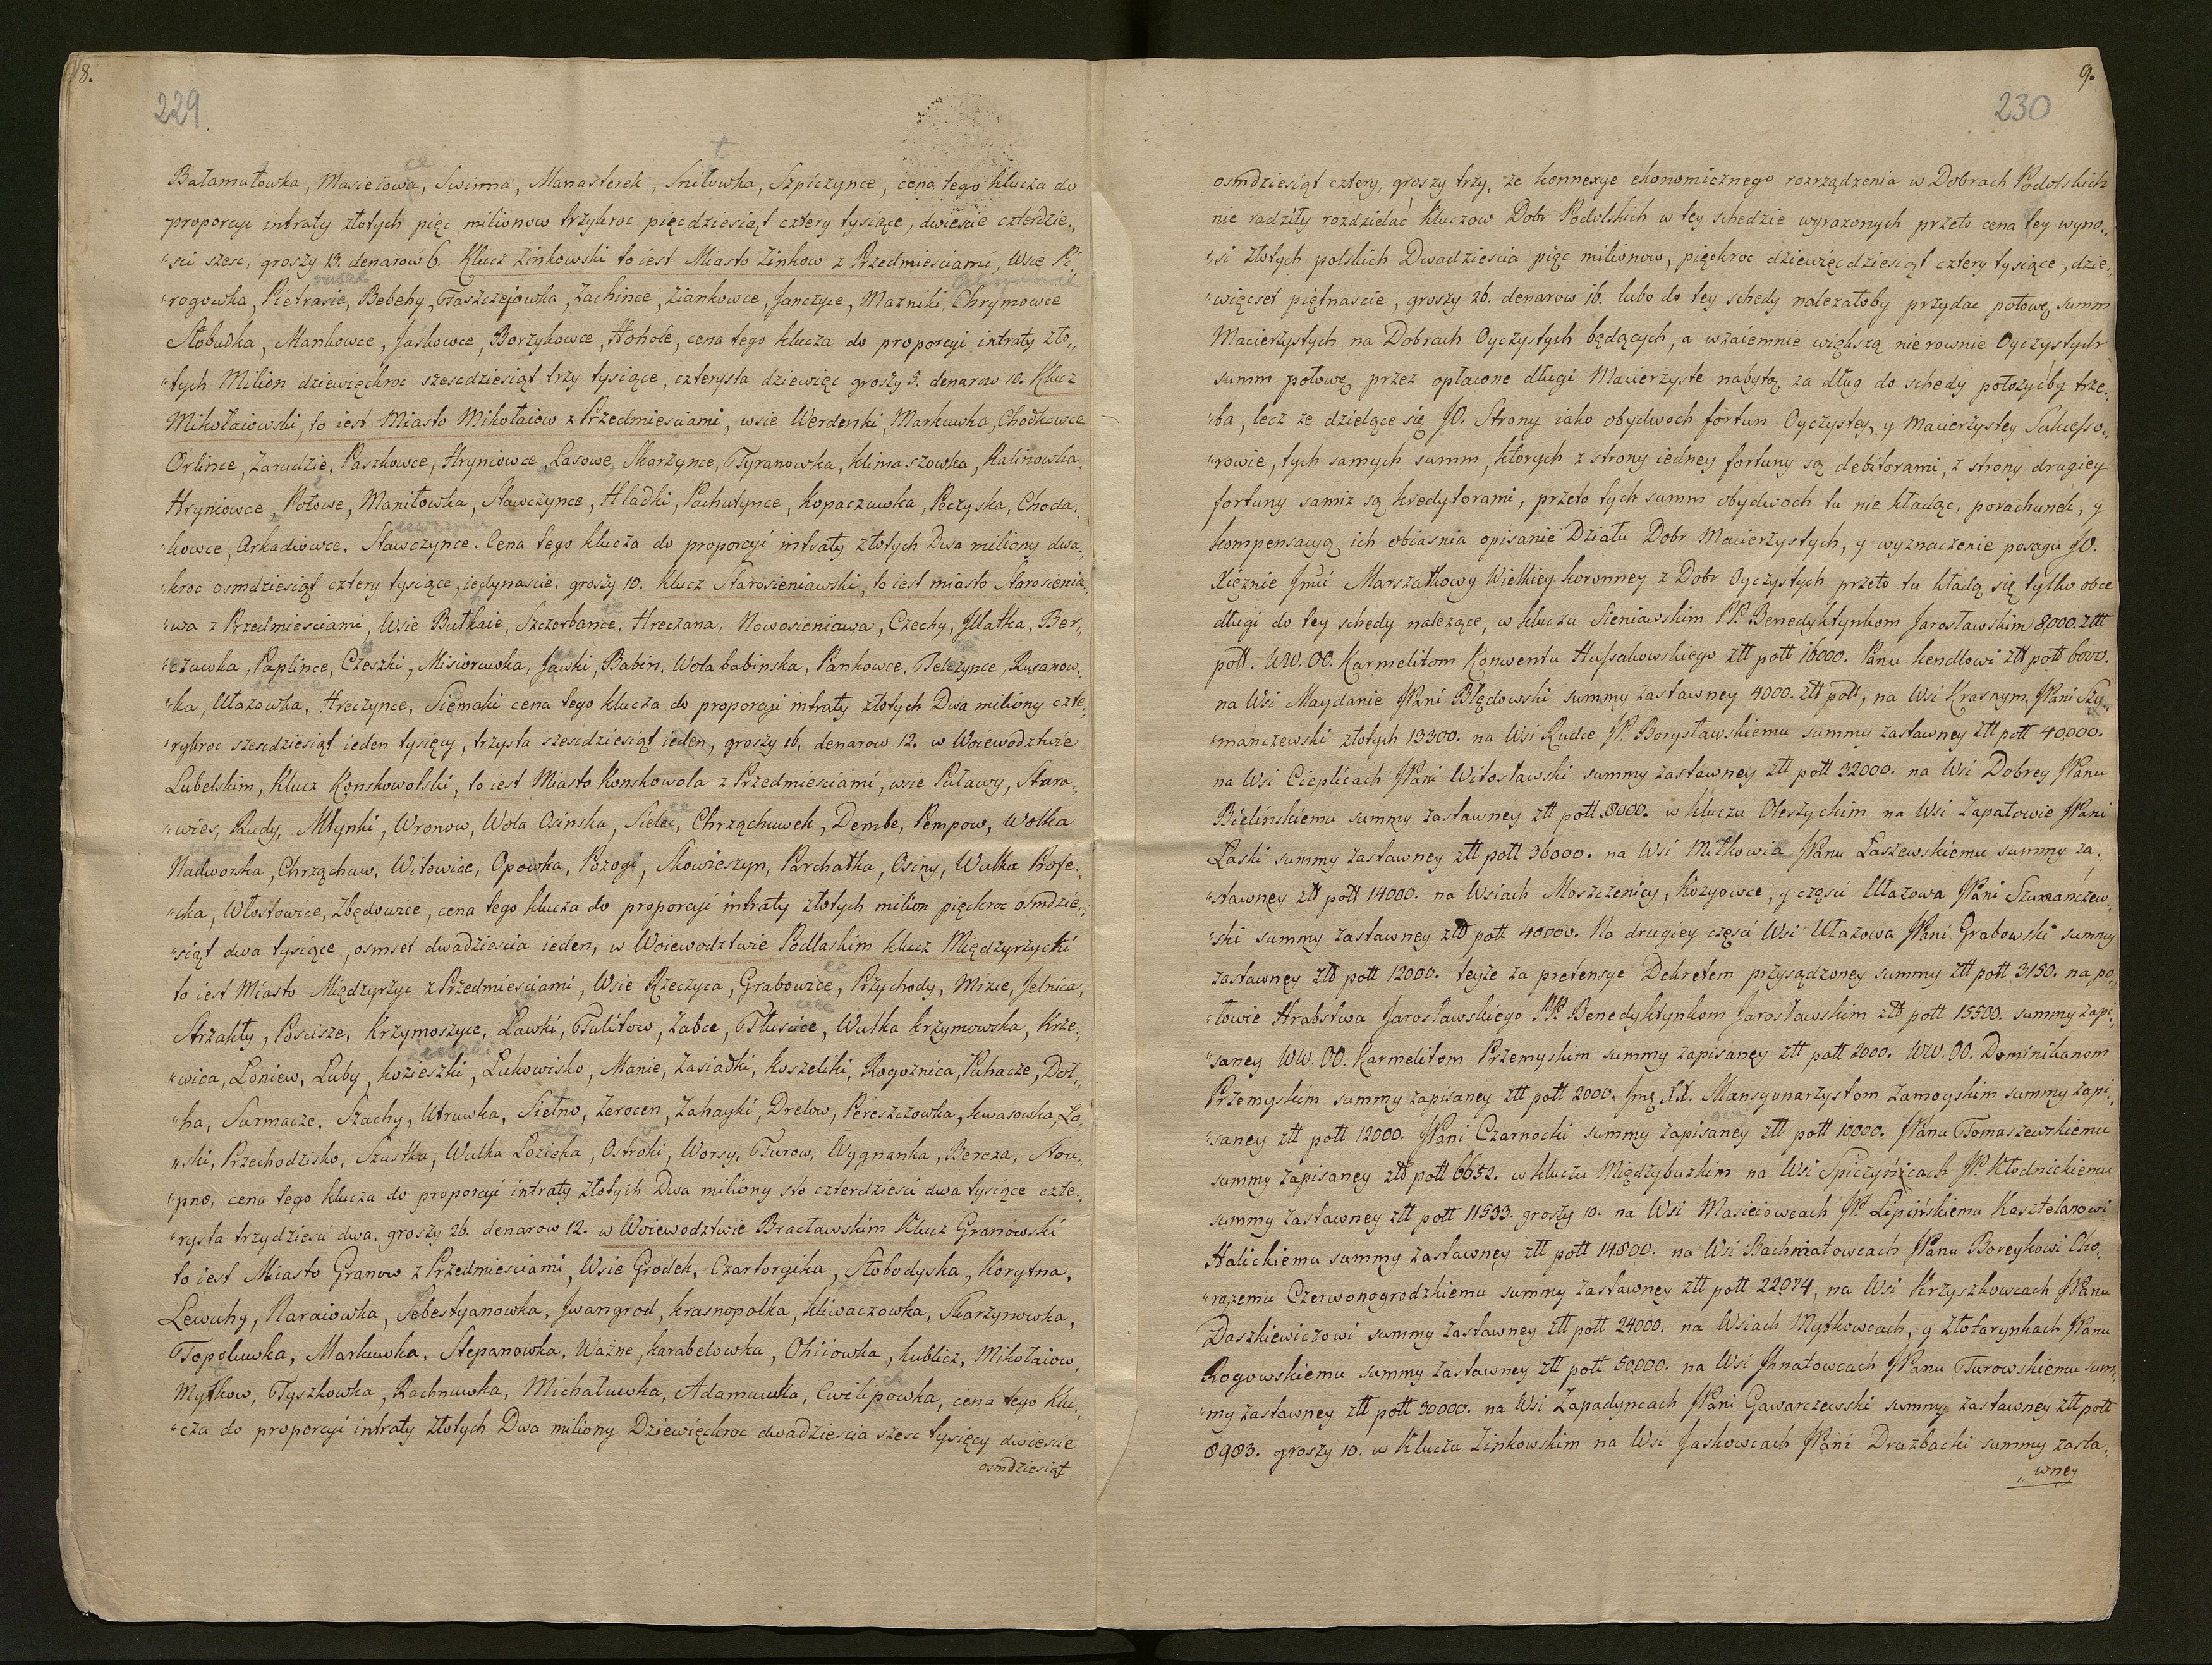 8.
229
Bałamutowka, Masieiowa, Swinna, Manasterek, Sniłowka, Szpiczynce, cena tego klucza do
proporcyi intraty złotych pięc milionow trzykroc pięcdziesiąt cztery tysiące, dwiescie czterdzie„
„sci szesc, groszy 19. denarow 6. Klucz Zinkowski to iest Miasto Zinkow z Przedmiesciami, Wsie Pi„
„rogowka, Pietrasie, Bebehy, Taszczejowka, Zachince, Ziankowce, Janczyce, Mazniki, Chrymowce
Słobudka, Mankowce, Jaśkowce, Borzykowce, Hohole, cena tego klucza do proporcyi intraty zło„
„tych Milion dziewięckroc szescdziesiąt trzy tysiące, czterysta dziewięc groszy 5. denarow 10. Klucz
Mikołaiowski, to iest Miasto Mikołaiow z Przedmiesciami, wsie Werdenki, Markuwka, Chodkowce
Orlince, Zarudzie, Paszkowce, Hryniowce, Lasowe, Skarzynce, Tyranowka, Klimaszowka, Kalinowka.
Hryniowce, Połowe, Maniłowka, Sławczynce, Hladki, Pachutynce, Kopaczuwka, Peczyska, Choda„
„kowce, Arkadiowce, Sławczynce. Cena tego klucza do proporcyi intraty złotych Dwa miliony dwa„
„kroc osmdziesiąt cztery tysiące, iedynascie, groszy 10. Klucz Starosieniawski, to iest miasto Starosienia„
„wa z Przedmiesciami, Wsie Butkaie, Szczerbance, Hreczana, Nowosieniawa, Czechy, Iłłatka, Ber„
„ezuwka, Paplince, Czeszki, Misioruwka, Jawki, Babin, Wola babinska, Pankowce, Teleżynce, Rusanow„
„ka, Ułazowka, Hreczynce, Siemaki cena tego klucza do proporcyi intraty złotych Dwa miliony czte„
„rykroc szescdziesiąt ieden tysięcy, trzysta szescdziesiąt ieden, groszy 16, denarow 12. w Woiewodztwie
Lubelskim, Klucz Konskowolski, to iest Miasto Konskowola z Przedmiesciami, wsie Puławy, Stara„
„wies, Rudy, Młynki, Wronow, Wola Osinska, Sielec, Chrząchuwek, Dembe, Pempow, Wolka
Nadworska, Chrząchuw, Witowice, Opowka, Pozogi, Skowieszyn, Parchatka, Osiny, Wulka Profe„
„cka, Włostowice, Zbędowice, cena tego klucza do proporcyi intraty złotych milion pięckroc osmdzie„
„siąt dwa tysiące, osmset dwadziescia ieden, w Woiewodztwie Podlaskim Klucz Międzyrzycki
to iest Miasto Międzyrzyc z Przedmiesciami, Wsie Rzeczyca, Grabowice, Przychody, Misie, Jelnica,
Strzakły, Poscisze, Krzymoszyce, Ławki, Tulitow, Zabce, Tłuscice, Wulka krzymowska, Krze„
„wica, Łoniew, Łuby, kozieszki, Łukowisko, Manie, Zasiadki, Koszeliki, Rogoznica, Puhacze, Doł„
„ha, Surmacze, Szachy, Utruwka, Sielno, Zerocen, Zahayki, Drelow, Pereszczowka, kwasowka, Ło„
„ski, Przechodzisko, Szustka, Wulka Łozieka, Ostroki, Worsy, Turow, Wygnanka, Bereza, Stou„
„pno, cena tego klucza do proporcyi intraty złotych Dwa miliony sto czterdziesci dwa tysiące czte„
„rysta trzydziesci dwa, groszy 26. denarow 12. w Woiewodztwie Bracławskim Klucz Granowski
to iest Miasto Granow z Przedmiesciami, Wsie Grodek, Czartoryika, Słobodyska, Korytna,
Lewuhy, Naraiowka, Sebestyanowka, Jwangrod, krasnopolka, kliwaczowka, Skarzynowka,
Topoluwka, Markuwka, Stepanowka, Ważne, karabelowka, Ohiiowka, kublicz, Mikołaiow,
Mytkow, Tyszkowka, Rachnuwka, Michałuwka, Adamuwka, Cwilipowka, cena tego Klu„
„cza do proporcyi intraty złotych Dwa miliony Dziewięckroc dwadziescia szesc tysięcy dwiescie
osmdziesiąt
9.
230
osmdziesiąt cztery, groszy trzy, ze konnexye ekonomicznego rozrządzenia w Dobrach Podolskich
nie radziły rozdzielać Kluczow Dobr Podolskich w tey schedzie wyrazonych przeto cena tey wyno„
„si złotych polskich Dwadziescia pięc milionow, pięckroc dziewięcdziesiąt cztery tysiące, dzie„
„więcset piętnascie, groszy 26. denarow 16. lubo do tey schedy nalezałoby przydac połowę summ
Macierzystych na Dobrach Oyczystych będących, a wzaiemnie większą nierownie Oyczystych
summ połowę przez opłacone długi Macierzyste nabytą za dług do schedy połozyćby trze„
„ba, lecz ze dzielące się JO. Strony iako obydwoch fortun Oyczystey, y Macierzystey Sukcesso„
„rowie, tych samych summ, ktorych z strony iedney fortuny są debitorami, z strony drugiey
fortuny samiż są kredytorami, przeto tych summ obydwoch tu nie kładąc, porachunek, y
kompensacyą ich obiasnia opisanie Działu Dobr Macierzystych, y wyznaczenie posagu JO.
Xięznie Jmci Marszałkowy Wielkiey koronney z Dobr Oyczystych przeto tu kładą się tylko obce
długi do tey schedy nalezące, w kluczu Sieniawskim PP. Benedyktynkom Jarosławskim 8,000. złtt
poll. WW. OO. Karmelitom Konwentu Hussakowskiego złtt poll 16000. Panu kendlowi złtt poll 6000.
na Wsi Maydanie JPani Błędowski summy zastawney 4000. złtt poll, na Wsi Krasnym, JPani Szy„
„manczewski złotych 13300. na Wsi Rudce JP. Borysławskiemu summy zastawney złtt poll 40,000.
na Wsi Cieplicach JPani Witosławski summy zastawney złtt poll 32000. na Wsi Dobrey JPanu
Bielińskiemu summy zastawney złtt poll 8000. w kluczu Oleszyckim na Wsi Zapałowie JPani
Łaski summy zastawney złtt poll 36000. na Wsi Miłkowia JPanu Łaszewskiemu summy za„
„stawney złtt poll 14000. na Wsiach Moszczenicy, Kozyowce, y częsci Ułazowa JPani Szumanczew„
„ski summy zastawney złtt poll 40000. Na drugiey częsci Wsi Ułazowa JPani Grabowski summy
zastawney złtt poll 12000. teyże za pretensye Dekretem przysądzoney summy złtt poll 3150. na po„
„łowie Hrabstwa Jarosławskiego PP. Benedyktynkom Jarosławskim złtt poll 15500. summy zapi„
„saney WW. OO. Karmelitom Przemyskim summy zapisaney złtt poll 2000. WW. OO. Dominikanom
Przemyskim summy zapisaney złtt poll 2000. Jmę XX. Mansyonarzystom Zamoyskim summy zapi„
„saney złtt poll 12000. JPani Czarnocki summy zapisaney złtt poll 10000. JPanu Tomaszewskiemu
summy zapisaney złtt poll 6652. w kluczu Międzybuzkim na Wsi Spiczyńcach JP. Kłodnickiemu
summy zastawney złtt poll 11533. groszy 10. na Wsi Masieiowcach JP. Lipińskiemu Kasztelanowi
Halickiemu summy zastawney złtt poll 14800. na Wsi Bachmatowcach JPanu Boreykowi Cho„
„rązemu Czerwonogrodzkiemu summy zastawney złtt poll 22074, na Wsi Krzyszkowcach JPanu
Daszkiewiczowi summy zastawney złtt poll 24000. na Wsiach Mytkowcach, y Złotarynkach JPanu
Rogowskiemu summy zastawney złtt poll 50,000. na Wsi Jhnatowcach JPanu Turowskiemu sum„
„my zastawney złtt poll 30000. na Wsi Zapadyncach JPani Gawarczewski summy zastawney złtt poll
8983. groszy 10. w Kluczu Zinkowskim na Wsi Jaskowcach JPani Drużbacki summy zasta„
„wney